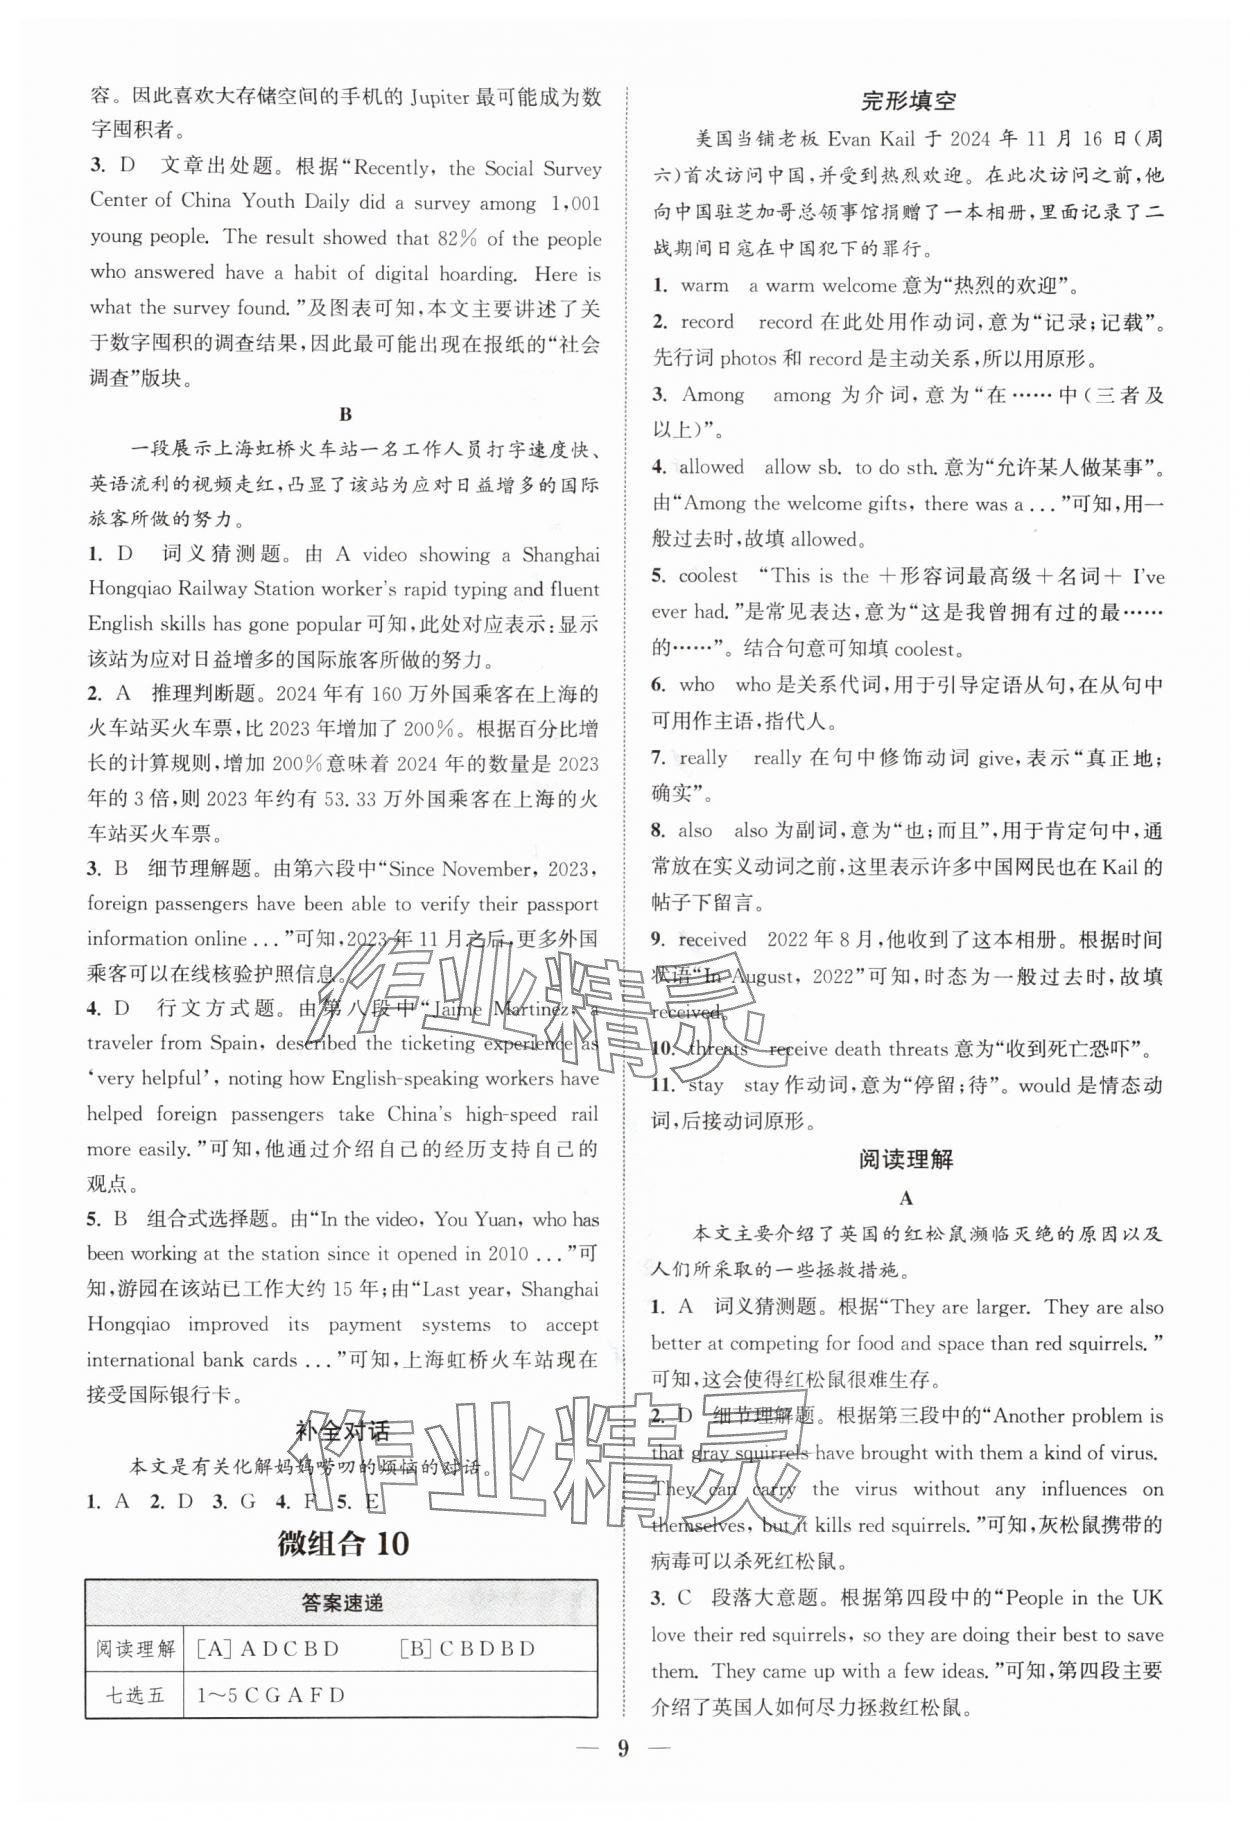 容。因此喜欢大存储空间的手机的 Jupiter 最可能成为数
字囤积者。
3. D　文章出处题。根据“Recently, the Social Survey
Center of China Youth Daily did a survey among 1,001
young people. The result showed that 82% of the people
who answered have a habit of digital hoarding. Here is
what the survey found. ”及图表可知,本文主要讲述了关
于数字囤积的调查结果,因此最可能出现在报纸的“社会
调查”版块。
B
一段展示上海虹桥火车站一名工作人员打字速度快、
英语流利的视频走红,凸显了该站为应对日益增多的国际
旅客所做的努力。
1. D　词义猜测题。由 A video showing a Shanghai
Hongqiao Railway Station worker's rapid typing and fluent
English skills has gone popular可知,此处对应表示:显示
该站为应对日益增多的国际旅客所做的努力。
2. A　推理判断题。2024 年有 160 万外国乘客在上海的
火车站买火车票,比 2023 年增加了 200%。根据百分比增
长的计算规则,增加 200%意味着 2024 年的数量是 2023
年的 3 倍,则 2023 年约有 53.33 万外国乘客在上海的火
车站买火车票。
3. B　细节理解题。由第六段中“Since November, 2023,
foreign passengers have been able to verify their passport
information online ... ”可知,2023 年 11 月之后,更多外国
乘客可以在线核验护照信息。
4. D　行文方式题。由第八段中“Jaime Martinez, a
traveler from Spain, described the ticketing experience as
‘very helpful’, noting how English-speaking workers have
helped foreign passengers take China's high-speed rail
more easily. ”可知,他通过介绍自己的经历支持自己的
观点。
5. B　组合式选择题。由“In the video, You Yuan, who has
been working at the station since it opened in 2010 ... ”可
知,游园在该站已工作大约 15 年;由“Last year, Shanghai
Hongqiao improved its payment systems to accept
international bank cards ... ”可知,上海虹桥火车站现在
接受国际银行卡。
补全对话
本文是有关化解妈妈唠叨的烦恼的对话。
1. A　2. D　3. G　4. F　5. E
微组合 10
答案速递
阅读理解　[A] A D C B D　[B] C B D B D
七选五　1～5 C G A F D
完形填空
美国当铺老板 Evan Kail 于 2024 年 11 月 16 日(周
六)首次访问中国,并受到热烈欢迎。在此次访问之前,他
向中国驻芝加哥总领事馆捐赠了一本相册,里面记录了二
战期间日寇在中国犯下的罪行。
1. warm　a warm welcome意为“热烈的欢迎”。
2. record　record在此处用作动词,意为“记录;记载”。
先行词 photos 和 record 是主动关系,所以用原形。
3. Among　among 为介词,意为“在……中(三者及
以上)”。
4. allowed　allow sb. to do sth. 意为“允许某人做某事”。
由“Among the welcome gifts, there was a ... ”可知,用一
般过去时,故填 allowed。
5. coolest　“This is the ＋形容词最高级＋名词＋ I've
ever had. ”是常见表达,意为“这是我曾拥有过的最……
的……”。结合句意可知填 coolest。
6. who　who是关系代词,用于引导定语从句,在从句中
可用作主语,指代人。
7. really　really 在句中修饰动词 give,表示“真正地;
确实”。
8. also　also 为副词,意为“也;而且”,用于肯定句中,通
常放在实义动词之前,这里表示许多中国网民也在 Kail 的
帖子下留言。
9. received　2022 年 8 月,他收到了这本相册。根据时间
状语“In August, 2022”可知,时态为一般过去时,故填
received。
10. threats　receive death threats意为“收到死亡恐吓”。
11. stay　stay作动词,意为“停留;待”。would是情态动
词,后接动词原形。
阅读理解
A
本文主要介绍了英国的红松鼠濒临灭绝的原因以及
人们所采取的一些拯救措施。
1. A　词义猜测题。根据“They are larger. They are also
better at competing for food and space than red squirrels. ”
可知,这会使得红松鼠很难生存。
2. D　细节理解题。根据第三段中的“Another problem is
that gray squirrels have brought with them a kind of virus.
They can carry the virus without any influences on
themselves, but it kills red squirrels. ”可知,灰松鼠携带的
病毒可以杀死红松鼠。
3. C　段落大意题。根据第四段中的“People in the UK
love their red squirrels, so they are doing their best to save
them. They came up with a few ideas. ”可知,第四段主要
介绍了英国人如何尽力拯救红松鼠。
— 9 —
作业精灵
作业精灵